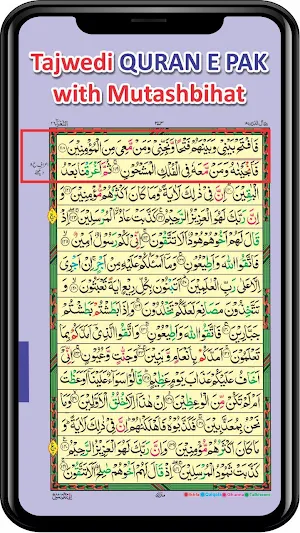 Tajwedi QURAN E PAK
with Mutashbihat
فَافْتَحْ بَيْنِيْ وَبَيْنَهُمْ فَتْحًا وَّنَجِّنِيْ وَمَنْ مَّعِيَ مِنَ الْمُؤْمِنِيْنَ
فَاَنْجَيْنٰهُ وَمَنْ مَّعَهٗ فِي الْفُلْكِ الْمَشْحُوْنِ ثُمَّ اَغْرَقْنَا بَعْدُ
الْبٰقِيْنَ اِنَّ فِيْ ذٰلِكَ لَاٰيَةً وَمَا كَانَ اَكْثَرُهُمْ مُّؤْمِنِيْنَ وَ
اِنَّ رَبَّكَ لَهُوَ الْعَزِيْزُ الرَّحِيْمُ كَذَّبَتْ عَادُ الْمُرْسَلِيْنَ اِذْ
قَالَ لَهُمْ اَخُوْهُمْ هُوْدٌ اَلَا تَتَّقُوْنَ اِنِّيْ لَكُمْ رَسُوْلٌ اَمِيْنٌ
فَاتَّقُوا اللّٰهَ وَاَطِيْعُوْنِ وَمَا اَسْـَٔلُكُمْ عَلَيْهِ مِنْ اَجْرٍ اِنْ اَجْرِيَ
اِلَّا عَلٰى رَبِّ الْعٰلَمِيْنَ اَتَبْنُوْنَ بِكُلِّ رِيْعٍ اٰيَةً تَعْبَثُوْنَ وَ
تَتَّخِذُوْنَ مَصَانِعَ لَعَلَّكُمْ تَخْلُدُوْنَ وَاِذَا بَطَشْتُمْ بَطَشْتُمْ
جَبَّارِيْنَ فَاتَّقُوا اللّٰهَ وَاَطِيْعُوْنِ وَاتَّقُوا الَّذِيْ اَمَدَّكُمْ بِمَا
تَعْلَمُوْنَ اَمَدَّكُمْ بِاَنْعَامٍ وَّبَنِيْنَ وَجَنّٰتٍ وَّعُيُوْنٍ اِنِّيْ
اَخَافُ عَلَيْكُمْ عَذَابَ يَوْمٍ عَظِيْمٍ قَالُوْا سَوَآءٌ عَلَيْنَا اَوَعَظْتَ
اَمْ لَمْ تَكُنْ مِّنَ الْوٰعِظِيْنَ اِنْ هٰذَا اِلَّا خُلُقُ الْاَوَّلِيْنَ وَمَا
نَحْنُ بِمُعَذَّبِيْنَ فَكَذَّبُوْهُ فَاَهْلَكْنٰهُمْ اِنَّ فِيْ ذٰلِكَ لَاٰيَةً وَ
مَا كَانَ اَكْثَرُهُمْ مُّؤْمِنِيْنَ وَاِنَّ رَبَّكَ لَهُوَ الْعَزِيْزُ الرَّحِيْمُ
كَذَّبَتْ ثَمُوْدُ الْمُرْسَلِيْنَ اِذْ قَالَ لَهُمْ اَخُوْهُمْ صٰلِحٌ اَلَا تَتَّقُوْنَ